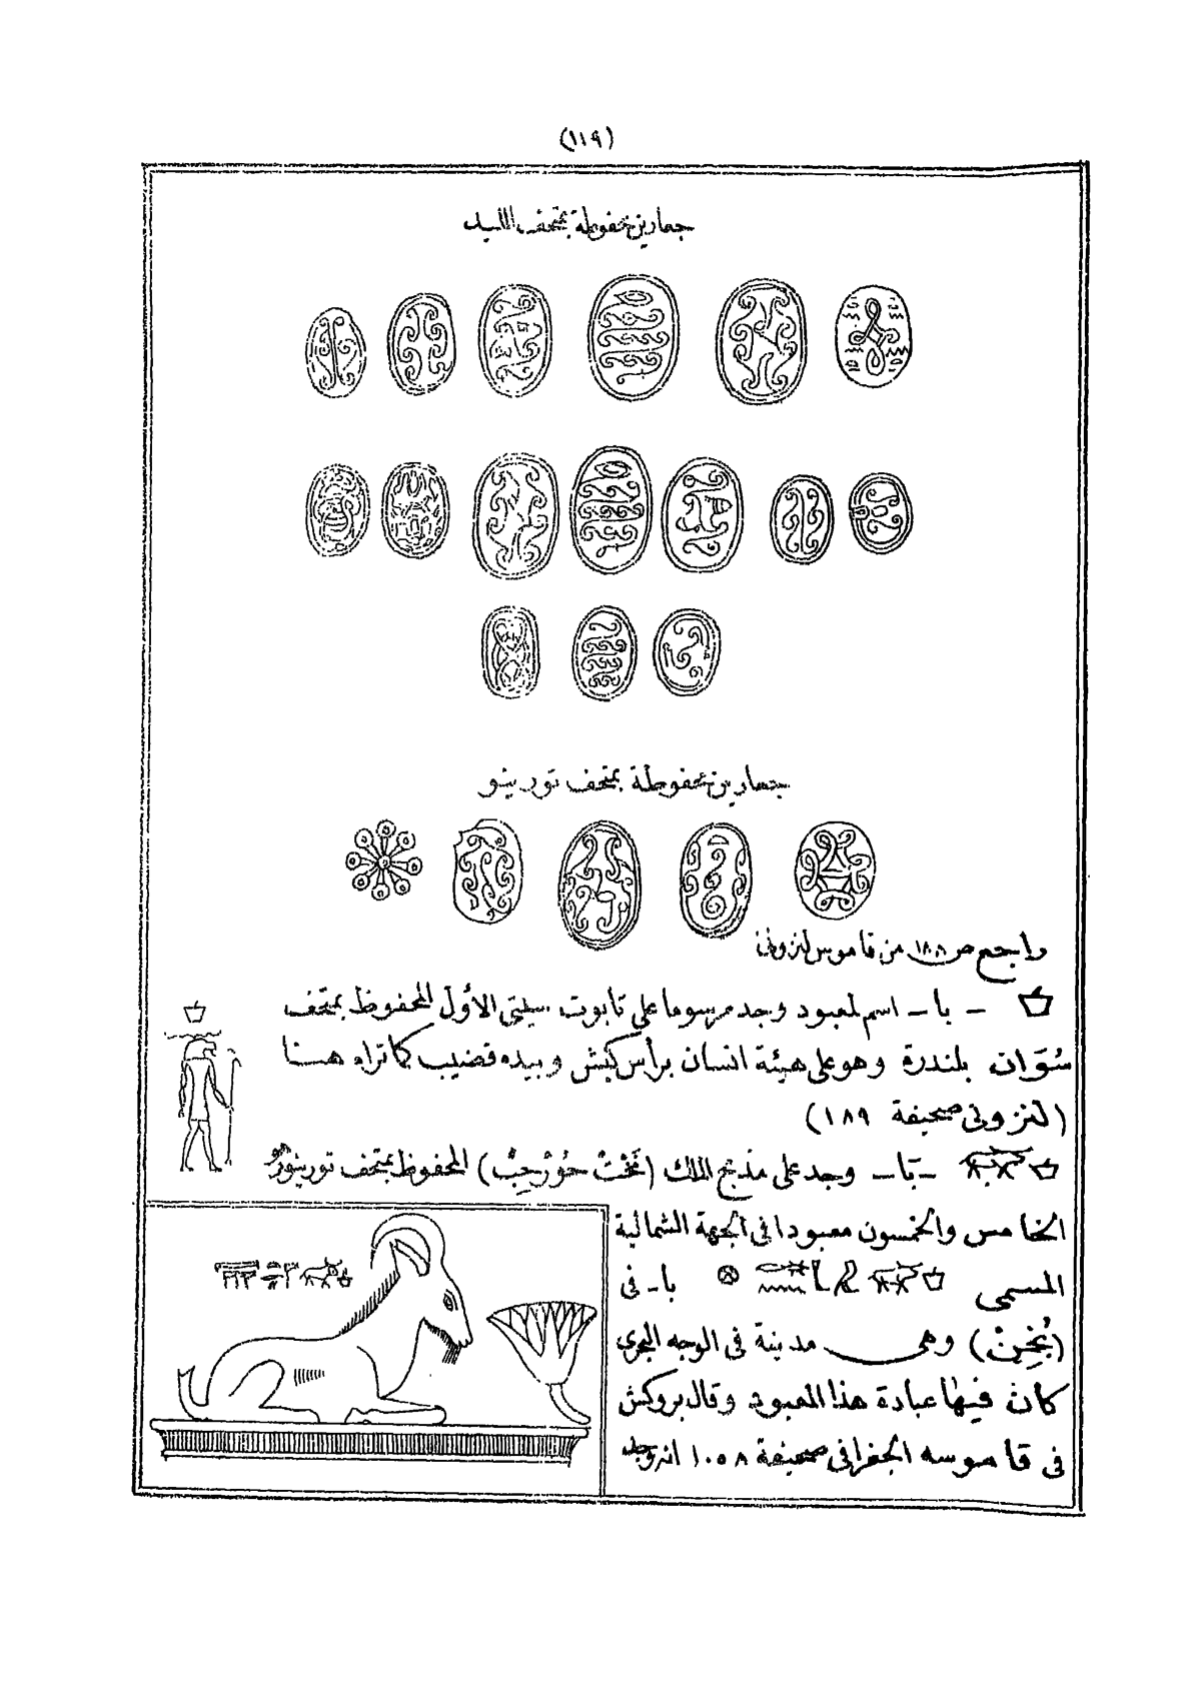 (١١٩)
جعارين محفوظة بمتحف الليد
جعارين محفوظة بمتحف تورينو
واجع ص ١٨٨ من قاموس لنزوني
ـ باـ اسم لمعبود وجد مرسوما على تابوت سيتي الأول المحفوظ بمتحف
سُوَان بلندرة وهو على هيئة انسان برأس كبش وبيده قضيب كما تراه هنا
(لنزونى صحيفة ١٨٩)
ـ بَاـ وجد على مذبح الملك (نَخْتْ حُوْرْحِبْ) المحفوظ بمتحف تورينو
الخامس والخمسون معبودا فى الجهة الشمالية
المسمى باـ فى
(بُخِنْ) وهى مدينة فى الوجه البحرى
كان فيها عبادة هذا المعبود وقال بروكش
فى قاموسه الجغرافى صحيفة ١٠٥٨ انه وجد